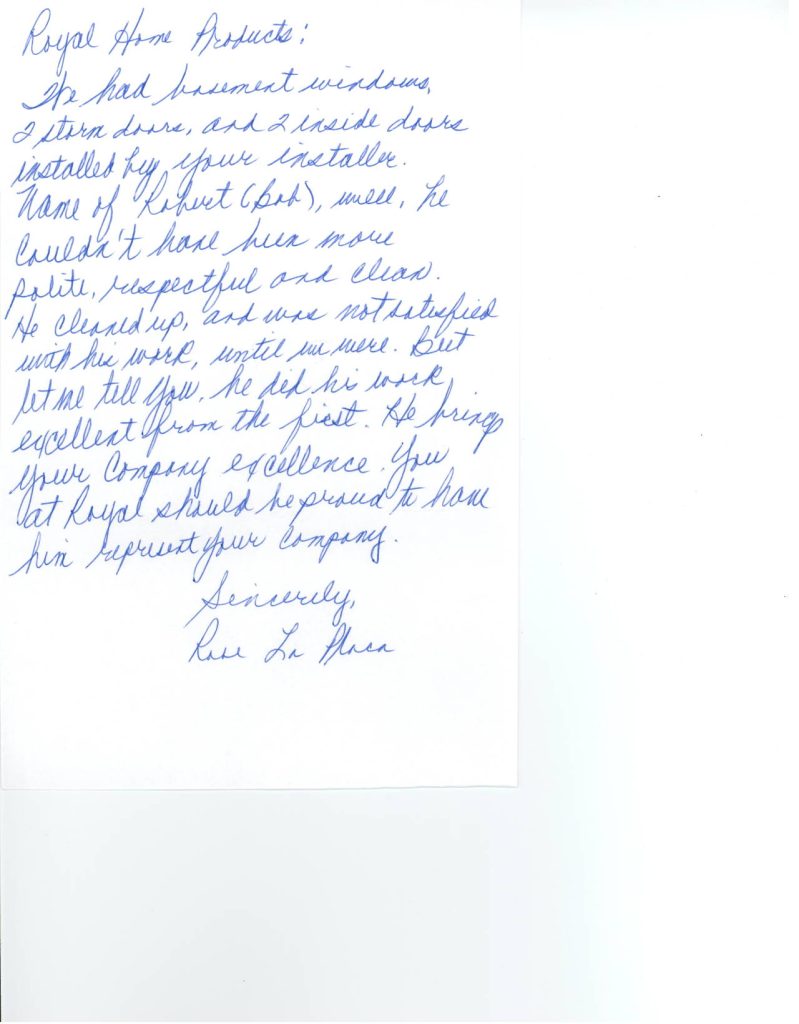 Royal Home Products:
We had basement windows,
2 storm doors, and 2 inside doors
installed by your installer.
Name of Robert (Bob), well, he
Couldn't have been more
polite, respectful and clean.
He cleaned up, and was not satisfied
with his work, until we were. But
let me tell you, he did his work
excellent from the first. He brings
your Company excellence. You
at Royal should be proud to have
him represent your Company.
Sincerely,
Rose La Placa